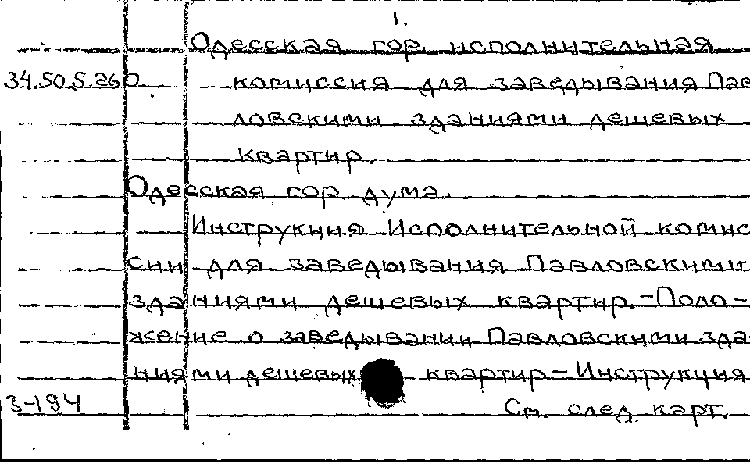 1.
Одесская гор. исполнительная
34.50.5.260 комиссия для заведывания Пав
ловскими зданиями дешевых
квартир.
Одесская гор дума.
Инструкция Исполнительной комис
сии для заведывания Павловскими
зданиями дешевых квартир.-Поло-
жение о заведывании Павловскими зда
ниями дешевых квартир-Инструкция
3-194 См. след. карт.